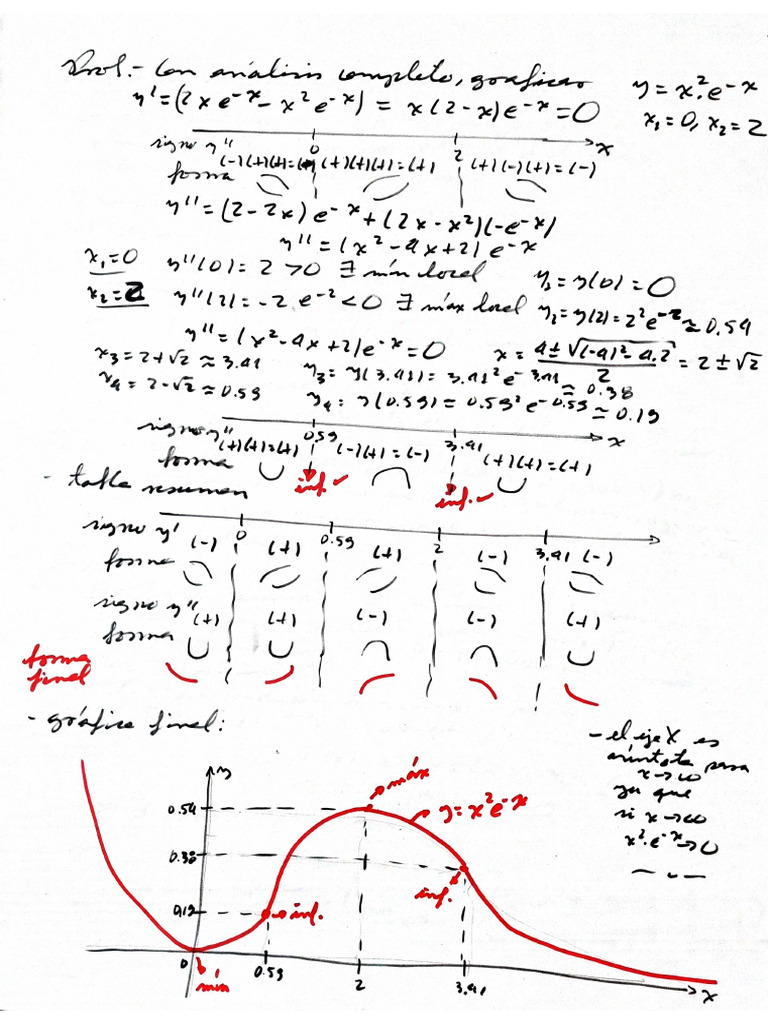 Prob.- Con análisis completo, graficar y = x².e⁻ˣ
y' = (2xe⁻ˣ - x²e⁻ˣ) = x(2-x)e⁻ˣ = 0 x₁=0, x₂=2
0 2 x
signo y''
(-)(+)(+)=(-) (+)(+)(+)=(+) (+)(-)(+)=(-)
forma
y'' = (2-2x)e⁻ˣ + (2x-x²)(-e⁻ˣ)
y'' = (x²-4x+2)e⁻ˣ
x₁=0 y''(0) = 2 > 0 ∃ mín local y₁ = y(0) = 0
x₂=2 y''(2) = -2e⁻² < 0 ∃ máx local y₂ = y(2) = 2²e⁻² ≈ 0.54
y'' = (x²-4x+2)e⁻ˣ = 0 x = (4±√((-4)²-4.2))/2 = 2±√2
x₃ = 2+√2 ≈ 3.41 y₃ = y(3.41) = 3.41²e^-3.41 ≈ 0.38
x₄ = 2-√2 ≈ 0.59 y₄ = y(0.59) = 0.59²e^-0.59 ≈ 0.19
signo y'' 0.59 3.41 x
(+)(+)=(+) (-)(+)=(-) (+)(+)=(+)
forma
inf. ✓ inf. ✓
- tabla resumen
0 0.59 2 3.41
signo y' (-) (+) (+) (-) (-)
forma
signo y'' (+) (+) (-) (-) (+)
forma
forma
final
- gráfica final:
- el eje X es
asíntota para
x→∞
ya que
si x→∞
x².e⁻ˣ→0
y
máx
0.54
y = x²e⁻ˣ
0.38
inf.
0.19
inf.
0 0.59 2 3.41 x
mín